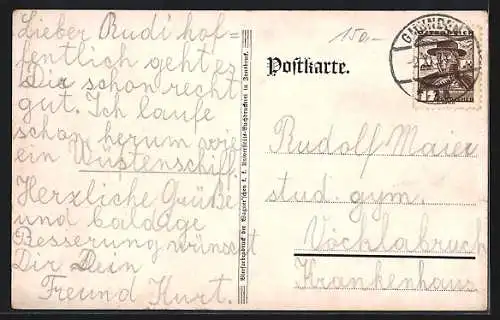 Lieber Rudi hof=
fentlich geht es
Dir schon recht
gut. Ich laufe
schon herum wie
ein Wüstenschiff.
Herzliche Grüße
und baldige
Besserung wünscht
Dir Dein
Freund Kurt.
Vierfarbendruck der Wagner'schen k. k. Universitäts-Buchdruckerei in Innsbruck.
150.-
Postkarte.
GMUNDEN
ÖSTERREICH
12
Rudolf Maier
stud. gym.
Vöcklabruck
Krankenhaus